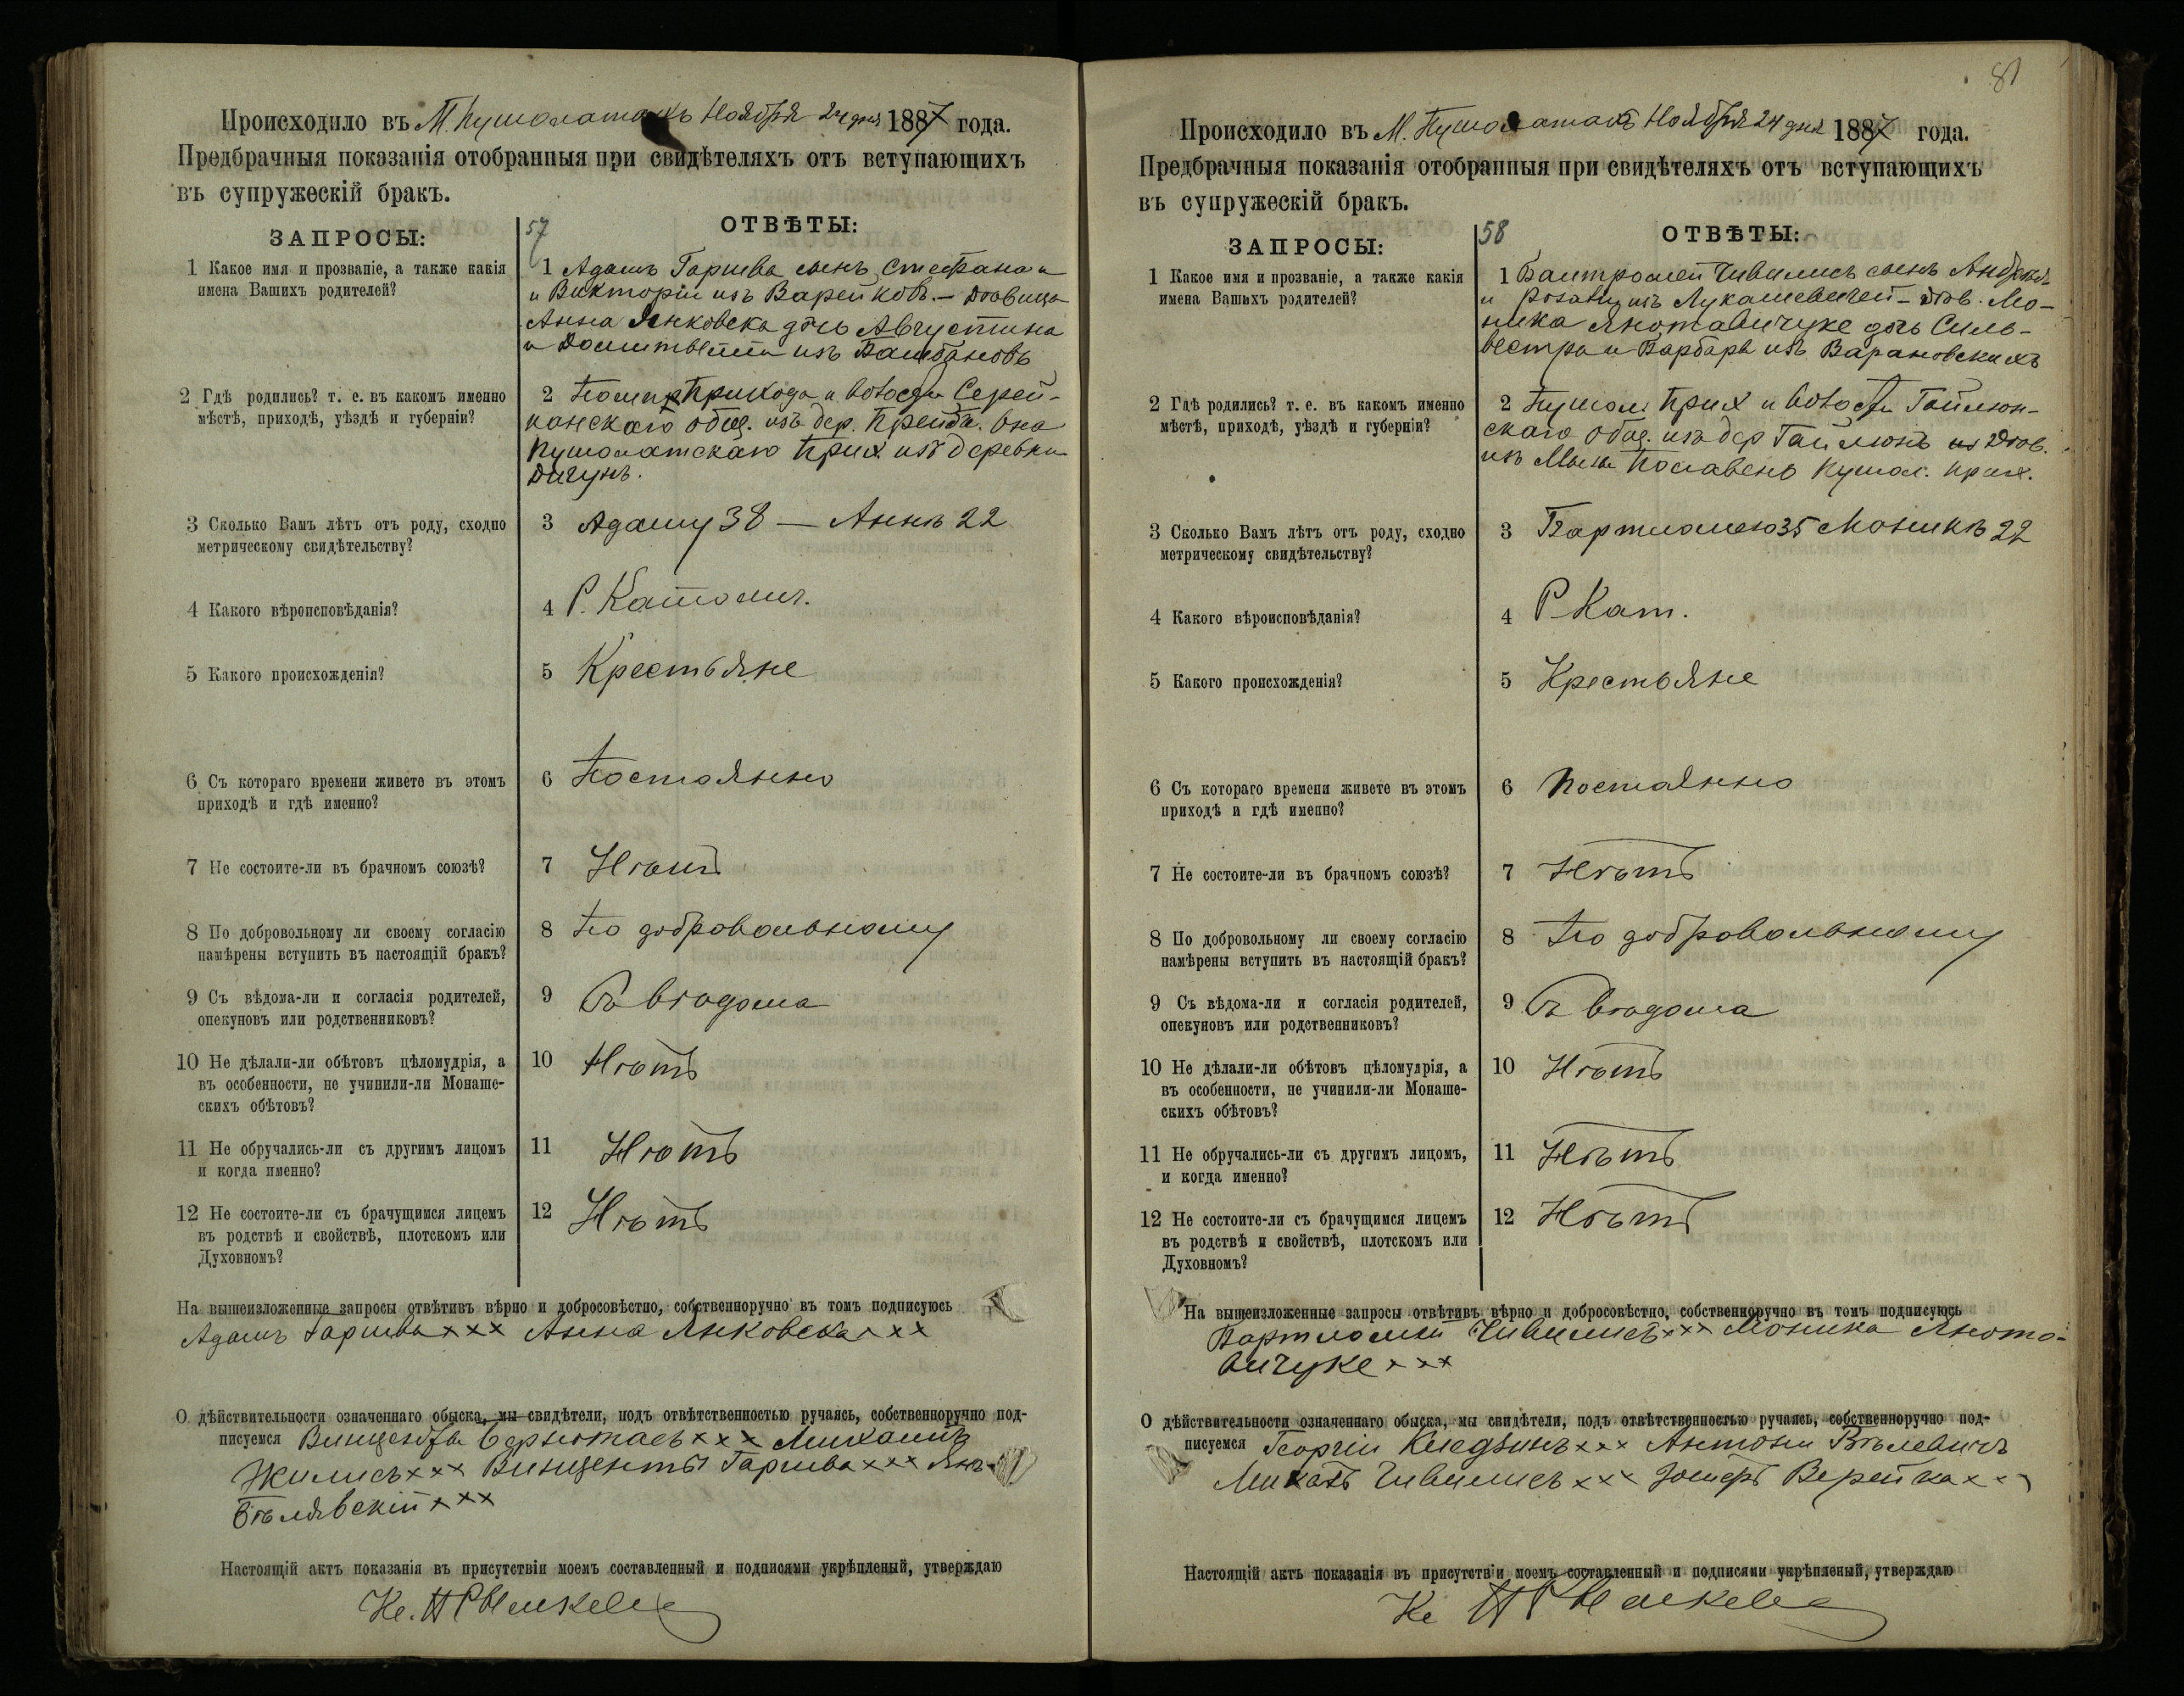 Происходило въ М. Пушолатахъ Ноября 24 дня 1887 года.
Предбрачныя показанія отобранныя при свидѣтеляхъ отъ вступающихъ
въ супружескій бракъ.
57
ЗАПРОСЫ:
ОТВѢТЫ:
1 Какое имя и прозваніе, а также какія
имена Вашихъ родителей?
1 Адамъ Гаршва сынъ Стефана и
и Викторіи изъ Варейковъ. — Дѣвица
Анна Янковска дочь Августина
и изъ
2 Гдѣ родились? т. е. въ какомъ именно
мѣстѣ, приходѣ, уѣздѣ и губерніи?
2 прихода и волости
общ. изъ дер. Она
Пушолатскаго прих изъ деревни
3 Сколько Вамъ лѣтъ отъ роду, сходно
метрическому свидѣтельству?
3 Адаму 38 — Аннѣ 22
4 Какого вѣроисповѣданія?
4 Р. Католич.
5 Какого происхожденія?
5 Крестьяне
6 Съ котораго времени живете въ этомъ
приходѣ и гдѣ именно?
6 Постоянно
7 Не состоите-ли въ брачномъ союзѣ?
7 Нѣтъ
8 По добровольному ли своему согласію
намѣрены вступить въ настоящій бракъ?
8 По добровольному
9 Съ вѣдома-ли и согласія родителей,
опекуновъ или родственниковъ?
9 Съ вѣдома
10 Не дѣлали-ли обѣтовъ цѣломудрія, а
въ особенности, не учинили-ли Монаше-
скихъ обѣтовъ?
10 Нѣтъ
11 Не обручались-ли съ другимъ лицомъ
и когда именно?
11 Нѣтъ
12 Не состоите-ли съ брачущимся лицемъ
въ родствѣ и свойствѣ, плотскомъ или
Духовномъ?
12 Нѣтъ
На вышеизложенные запросы отвѣтивъ вѣрно и добросовѣстно, собственноручно въ томъ подписуюсь
Адамъ Гаршва ××× Анна Янковска ×××
О дѣйствительности означеннаго обыска, мы свидѣтели, подъ отвѣтственностью ручаясь, собственноручно под-
писуемся ××× Михаилъ
Жилисъ ××× Винцентъ Гаршва ××× Янъ
Бѣлявскій ×××
Настоящій актъ показанія въ присутствіи моемъ составленный и подписями укрѣпленый, утверждаю
Кс.
81
Происходило въ М. Пушолатахъ Ноября 24 дня 1887 года.
Предбрачныя показанія отобранныя при свидѣтеляхъ отъ вступающихъ
въ супружескій бракъ.
58
ЗАПРОСЫ:
ОТВѢТЫ:
1 Какое имя и прозваніе, а также какія
имена Вашихъ родителей?
1 Балтромей Чивилисъ сынъ Андрея
и изъ Лукашевичей — дѣв. Мо-
ника дочь Силь-
вестра и Варбары изъ Барановскихъ
2 Гдѣ родились? т. е. въ какомъ именно
мѣстѣ, приходѣ, уѣздѣ и губерніи?
2 Пушол. прих и волости Гайлюн-
скаго общ. изъ дер Гайлюнъ дѣв.
изъ Пушол. прих.
3 Сколько Вамъ лѣтъ отъ роду, сходно
метрическому свидѣтельству?
3 Бартломею 35 Моникѣ 22
4 Какого вѣроисповѣданія?
4 Р Кат.
5 Какого происхожденія?
5 Крестьяне
6 Съ котораго времени живете въ этомъ
приходѣ и гдѣ именно?
6 Постоянно
7 Не состоите-ли въ брачномъ союзѣ?
7 Нѣтъ
8 По добровольному ли своему согласію
намѣрены вступить въ настоящій бракъ?
8 По добровольному
9 Съ вѣдома-ли и согласія родителей,
опекуновъ или родственниковъ?
9 Съ вѣдома
10 Не дѣлали-ли обѣтовъ цѣломудрія, а
въ особенности, не учинили-ли Монаше-
скихъ обѣтовъ?
10 Нѣтъ
11 Не обручались-ли съ другимъ лицомъ,
и когда именно?
11 Нѣтъ
12 Не состоите-ли съ брачущимся лицемъ
въ родствѣ и свойствѣ, плотскомъ или
Духовномъ?
12 Нѣтъ
На вышеизложенные запросы отвѣтивъ вѣрно и добросовѣстно, собственноручно въ томъ подписуюсь
Бартломей Чивилисъ ××× Моника
×××
О дѣйствительности означеннаго обыска, мы свидѣтели, подъ отвѣтственностью ручаясь, собственноручно под-
писуемся Георгій ××× Антоній
Михалъ Чивилисъ ××× Верейка ×××
Настоящій актъ показанія въ присутствіи моемъ составленный и подписями укрѣпленый, утверждаю
Кс